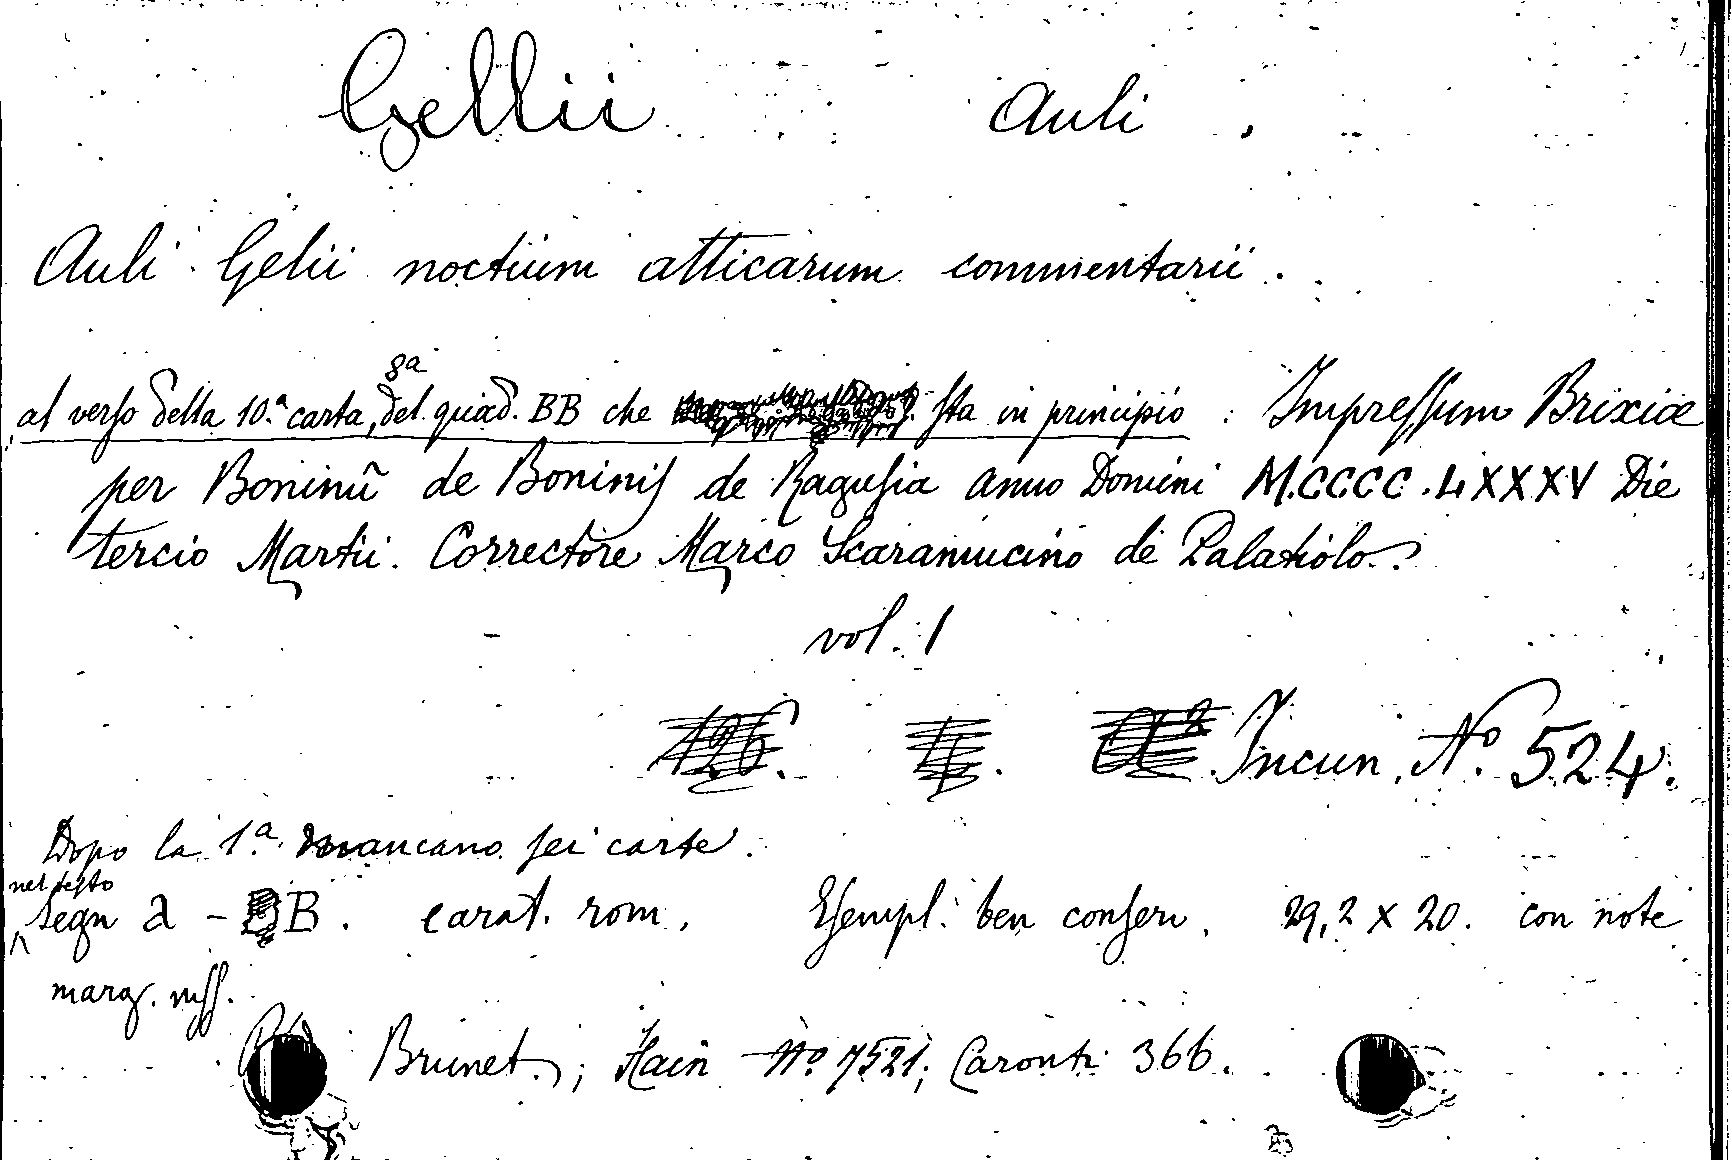 Gellii Auli
Auli Gelii noctium atticarum commentarii.
al verso della 10.a carta, 8a del quad. BB che sta in principio : Impressum Brixiae
per Boninũ de Boninis de Ragusia anno Domini M.CCCC.LXXXV Die
tercio Martii. Correctore Marco Scaramucino de Palatiolo.
vol. 1
Incun. No. 524.
Dopo la 1.a mancano sei carte.
nel testo
segn a - BB. carat. rom. Esempl. ben conserv. 29,2 x 20. con note
marg. mss.
Brunet.; Hain No. 7521; Caronti 366.